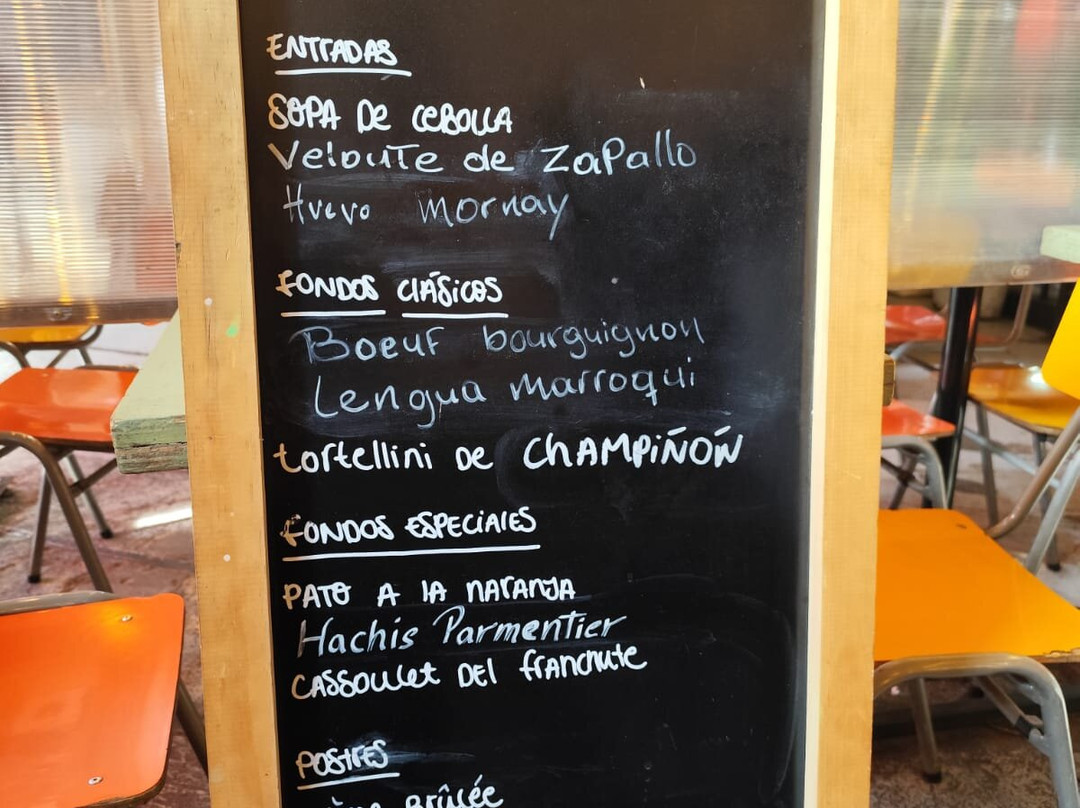 ENTRADAS
SOPA DE CEBOLLA
Veloute de Zapallo
Huevo Mornay
FONDOS CLÁSICOS
Boeuf bourguignon
Lengua Marroqui
tortellini DE CHAMPIÑOÑ
FONDOS ESPECIALES
PATO A LA NARANJA
Hachis Parmentier
CASSOULET DEL franchute
POSTRES
BRÛLÉE